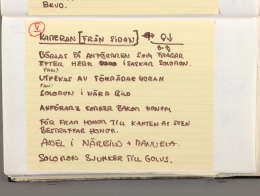 BRUD.
V
KAMERAN [FRÅN SIDAN]
BÖRJAS PÅ ANFÖRAREN SOM FRÅGAR
EFTER HERR I SACKAR SOLORON.
PAN!
UTPEKAS AV FÖRRÄDAR HORAN
PAN!
SOLORON I NÄRA BILD
ANFÖRARE KOMMER BAKOM HONOM
FÖR FRAM HONOM TILL KANTEN AV SCEN
BESTRAFFAR HONOM.
ADEL I NÄRBILD + MANUELA
SOLORON SJUNKER TILL GOLVS.